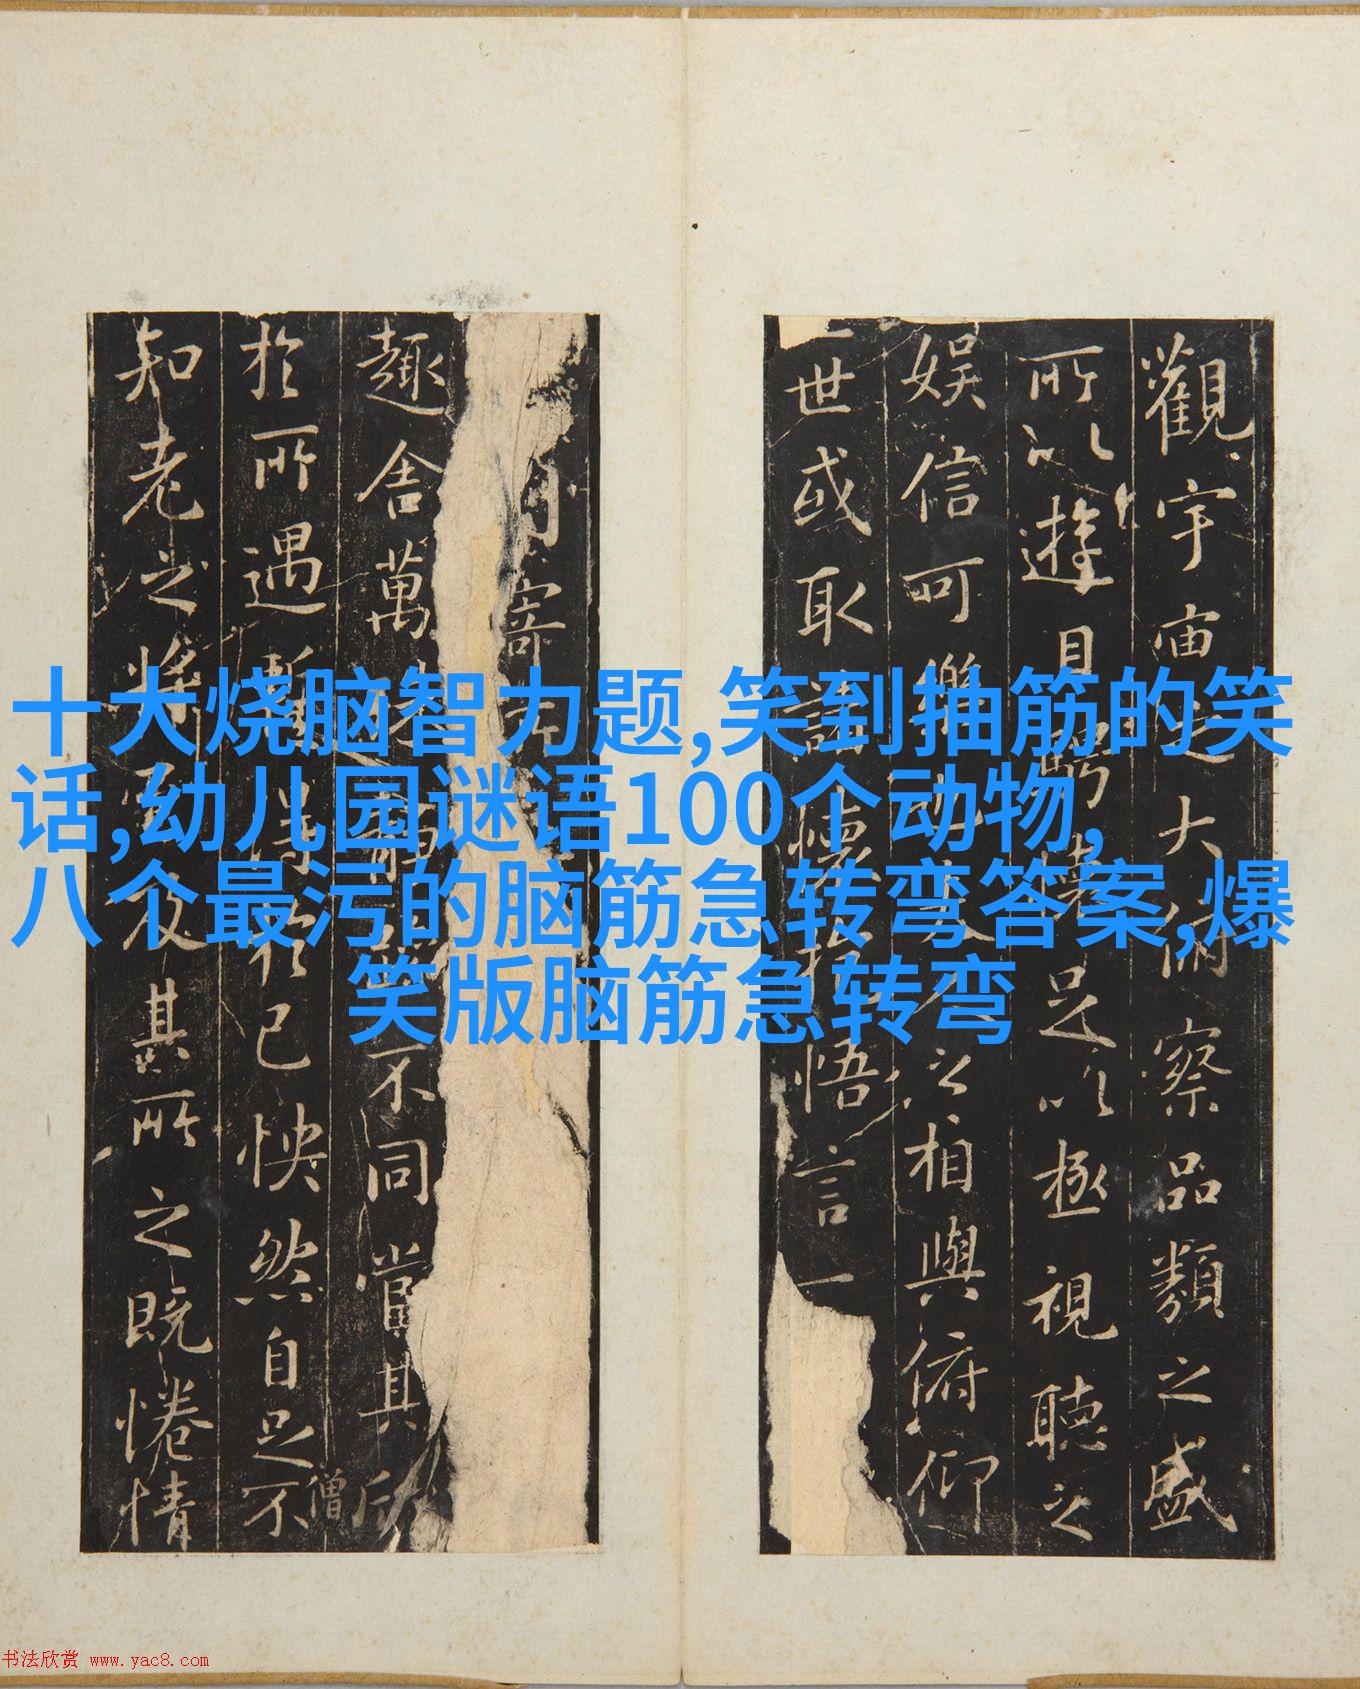 十大烧脑智力题,笑到抽筋的笑
话,幼儿园谜语100个动物,
八个最污的脑筋急转弯答案,爆
笑版脑筋急转弯
觀宇宙之大俯察品類之盛
所以遊目騁懷足以極視聽之
娛信可樂也夫人之相與俯仰
世或取諸懷抱悟言一
寄
趣舍萬殊不同當其欣
僧
於所遇暫得於己怏然自足不
知老之將至及其所之既惓情
书法欣赏 www.yac8.com